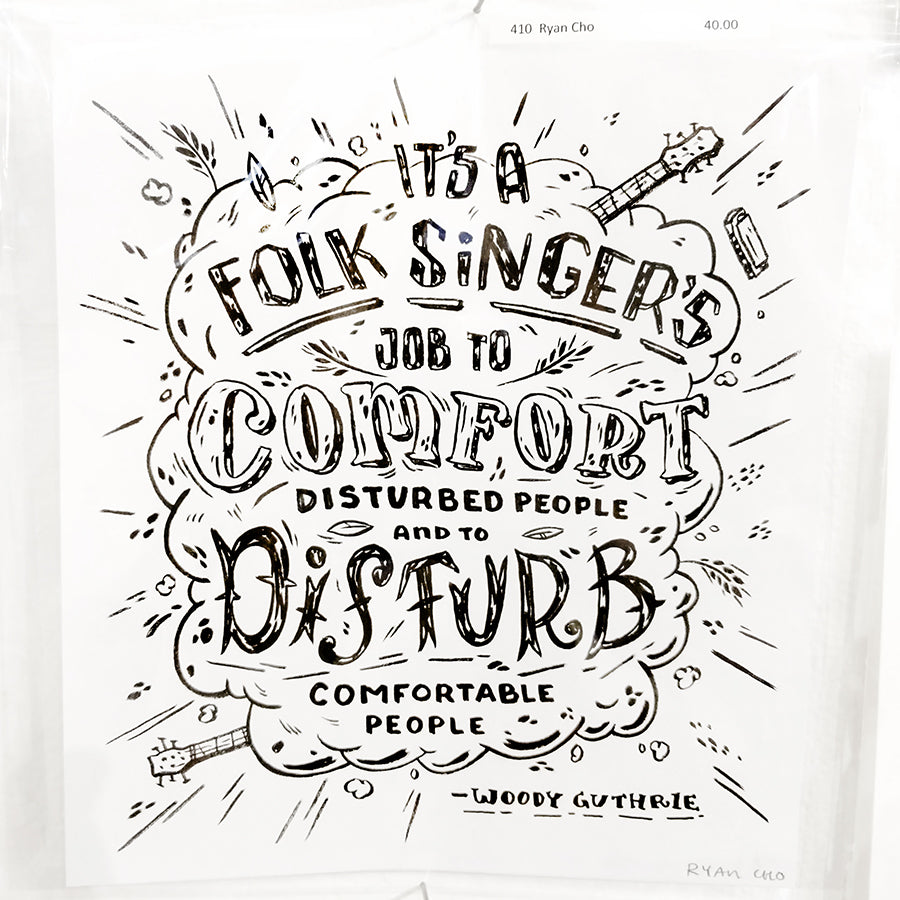 410 Ryan Cho 40.00
IT'S A
FOLK SiNGER'S
JOB TO
COMFORT
DISTURBED PEOPLE
AND TO
DiSTURB
COMFORTABLE
PEOPLE
-WOODY GUTHRIE
RYAN CHO